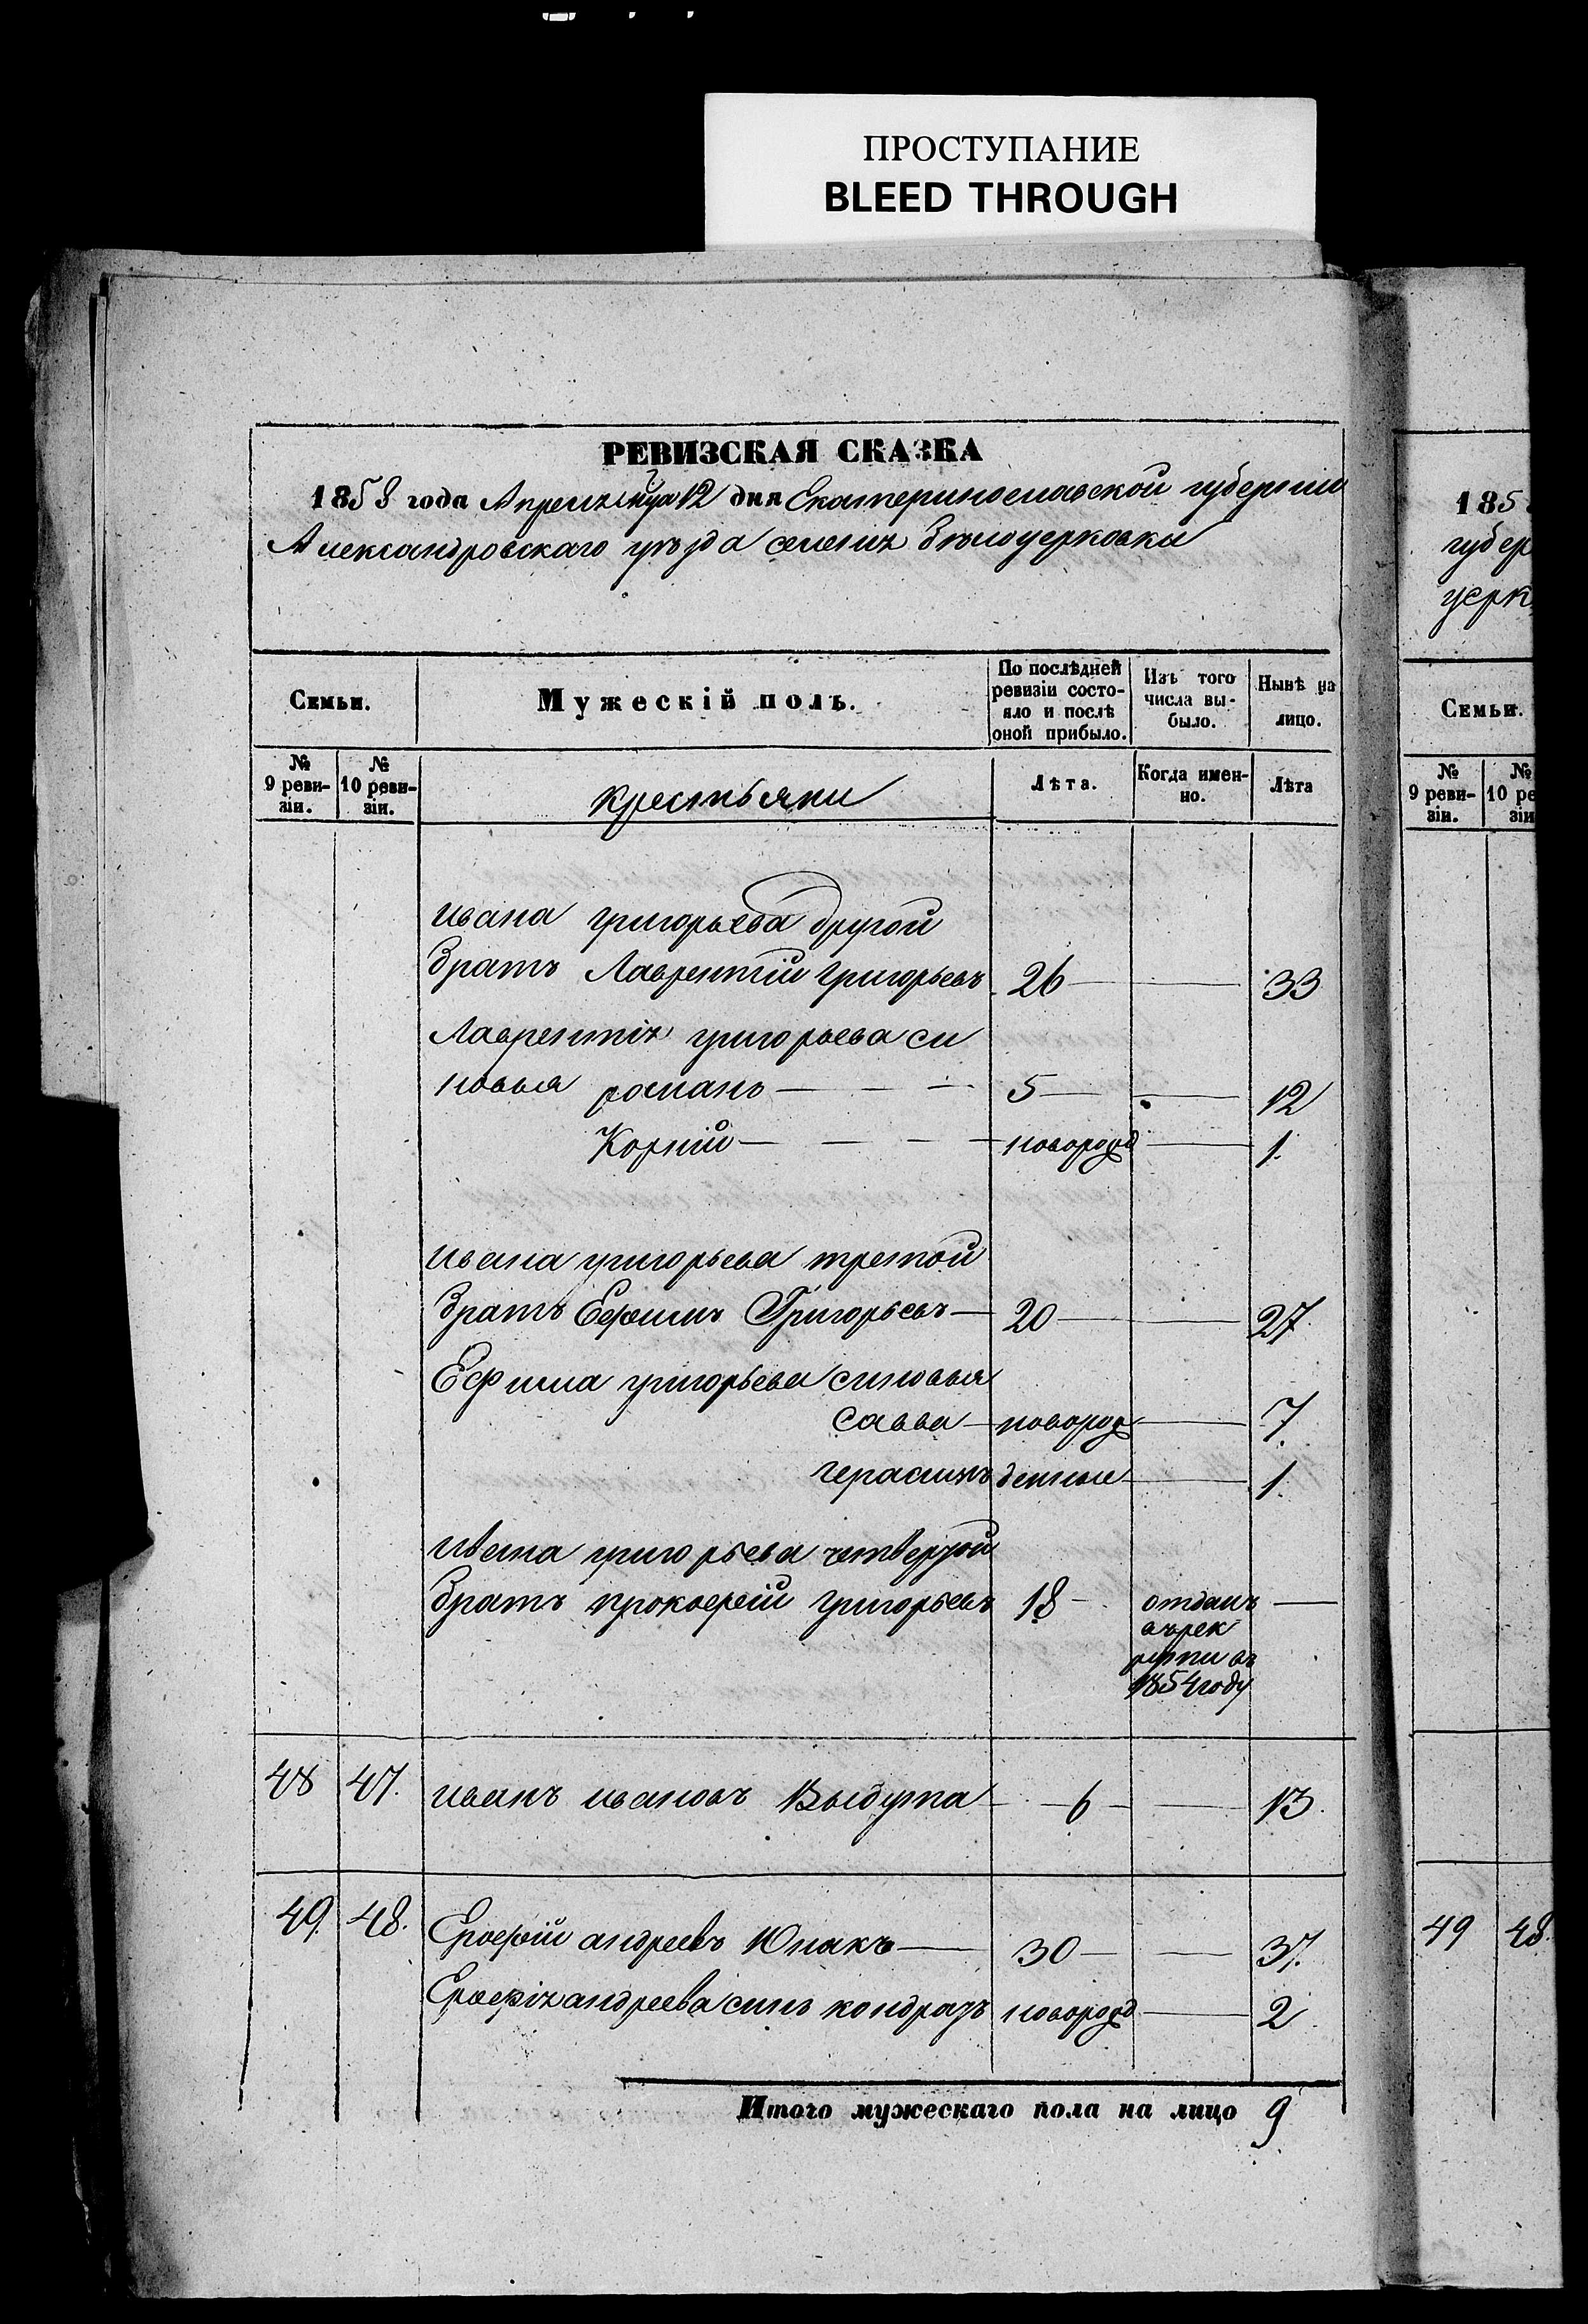 ПРОСТУПАНИЕ
BLEED THROUGH
РЕВИЗСКАЯ СКАЗКА
1858 года Апреля мца 12 дня Екатеринославской губернии
Александровскаго уѣзда селенія Бѣлоцерковки
Семьи.
Мужескій полъ.
По послѣдней ревизіи состояло и послѣ оной прибыло.
Изъ того числа выбыло.
Нынѣ на лицо.
№ 9 ревизіи.
№ 10 ревизіи.
крестьяни
Лѣта.
Когда именно.
Лѣта
ивана григорьева другой
братъ Лаврентій григорьевъ 26 — — 33
Лаврентія григорьева си
новья романъ — — — 5 — — 12
Корній — — — новорожд — 1
ивана григорьева третой
братъ Ефимъ Григорьевъ — 20 — — 27
Ефима григорьева синовья
савва — новорож — 7
герасимъ денные — 1
ивана григорьева четвертой
братъ прокофій григорьевъ 18 — отданъ —
въ рек
рути въ
1854 году
48 47. иванъ ивановъ Выбута — 6 — — 13.
49. 48. Ерофій андреевъ Юнакъ — 30 — — 37.
Ерофія андреева синъ кондратъ новорожд — 2
Итого мужескаго пола на лицо 9
185
губер
церк
Семьи.
№ 9 ревизіи.
№ 10 ре
зіи
49 48.